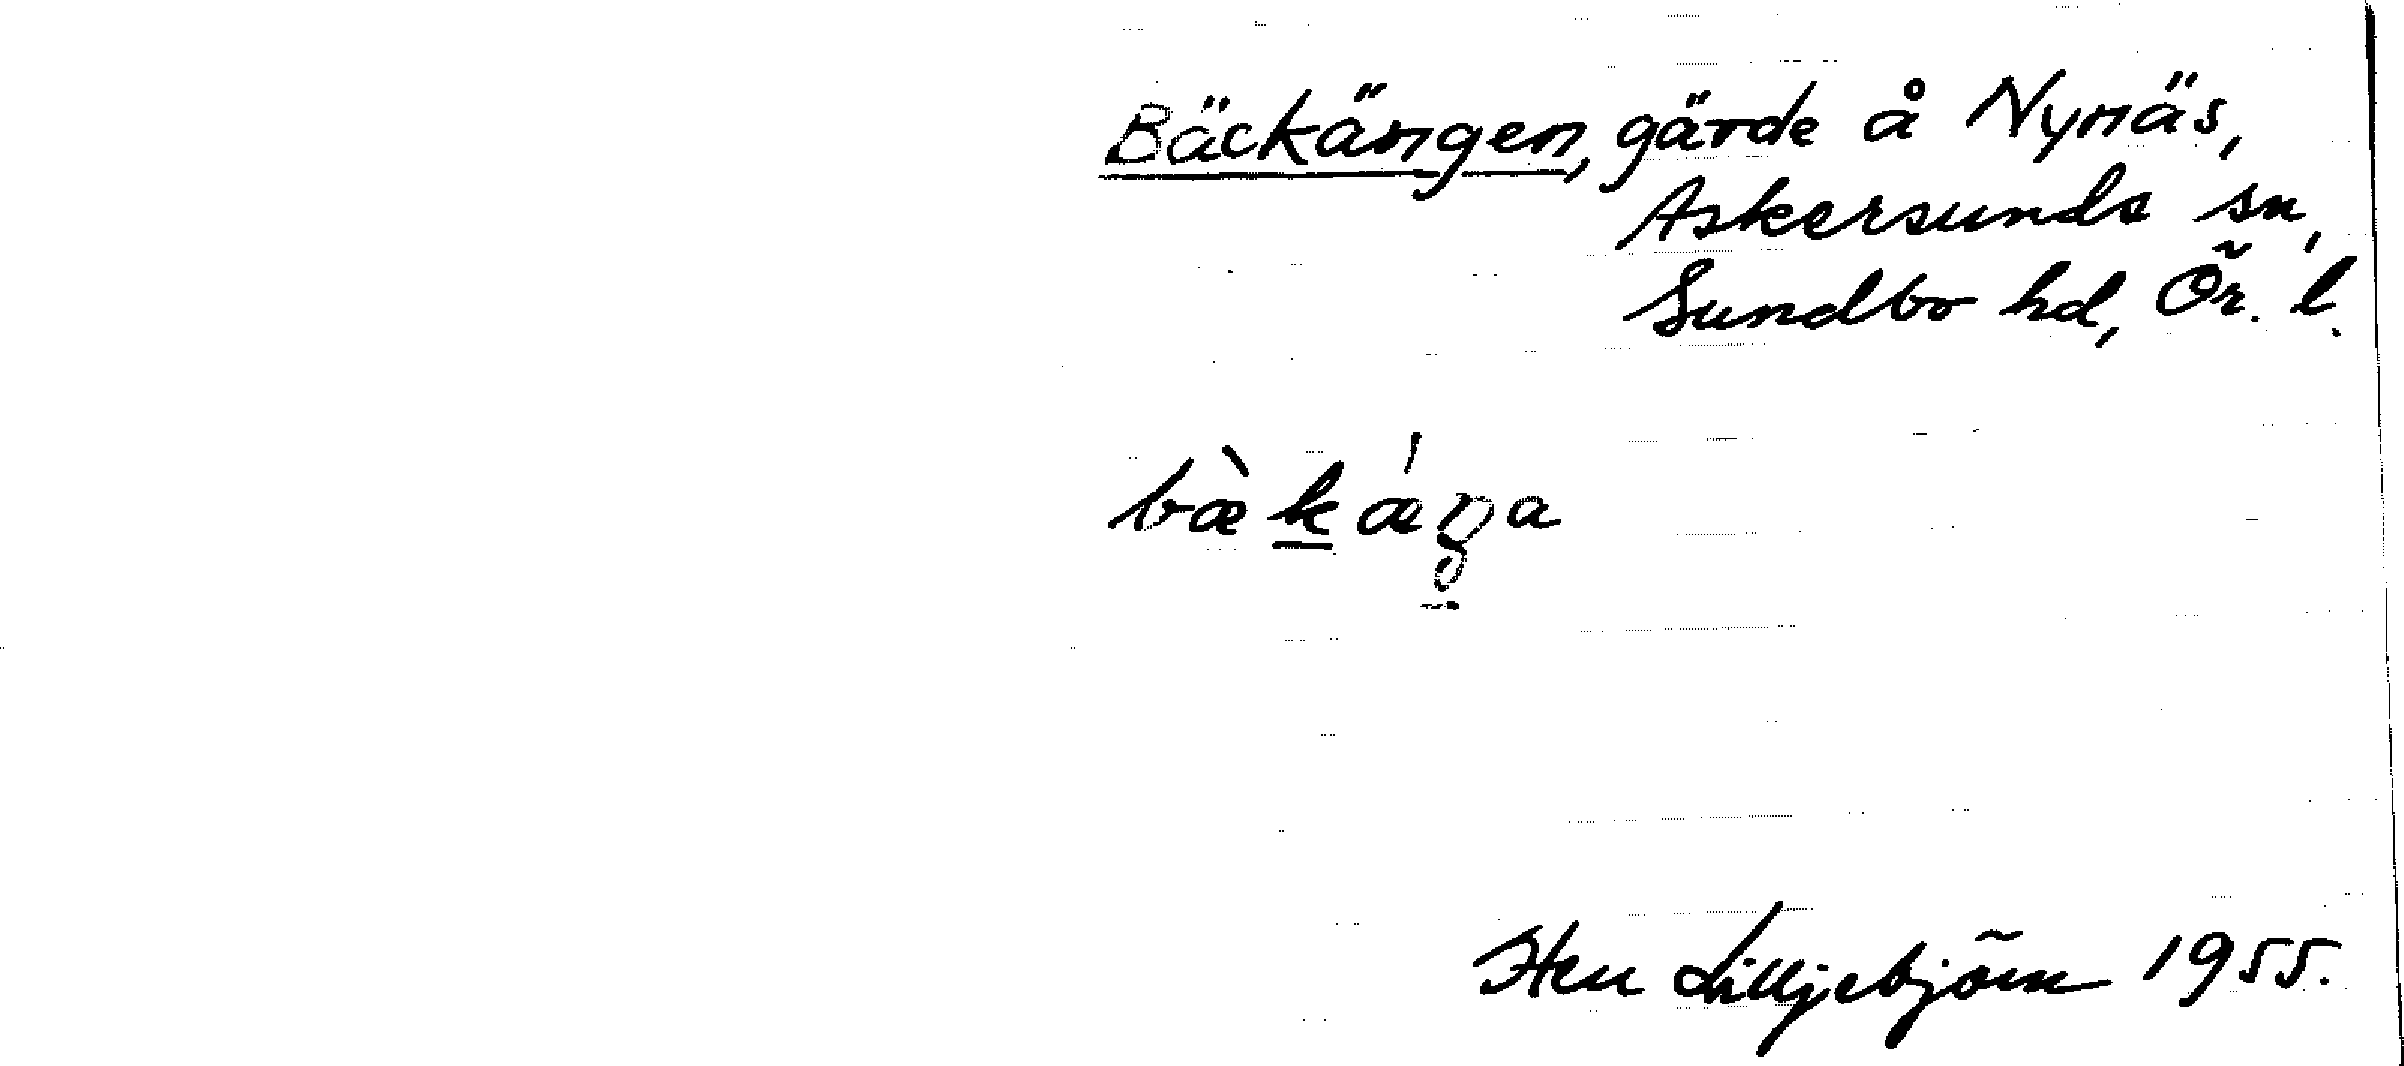 Bäckängen, gärde å Nynäs,
Askersunds sn,
Sundbo hd, Ör. l.
bæ̀kǽŋa
Hen Lilljebjörn 1955.